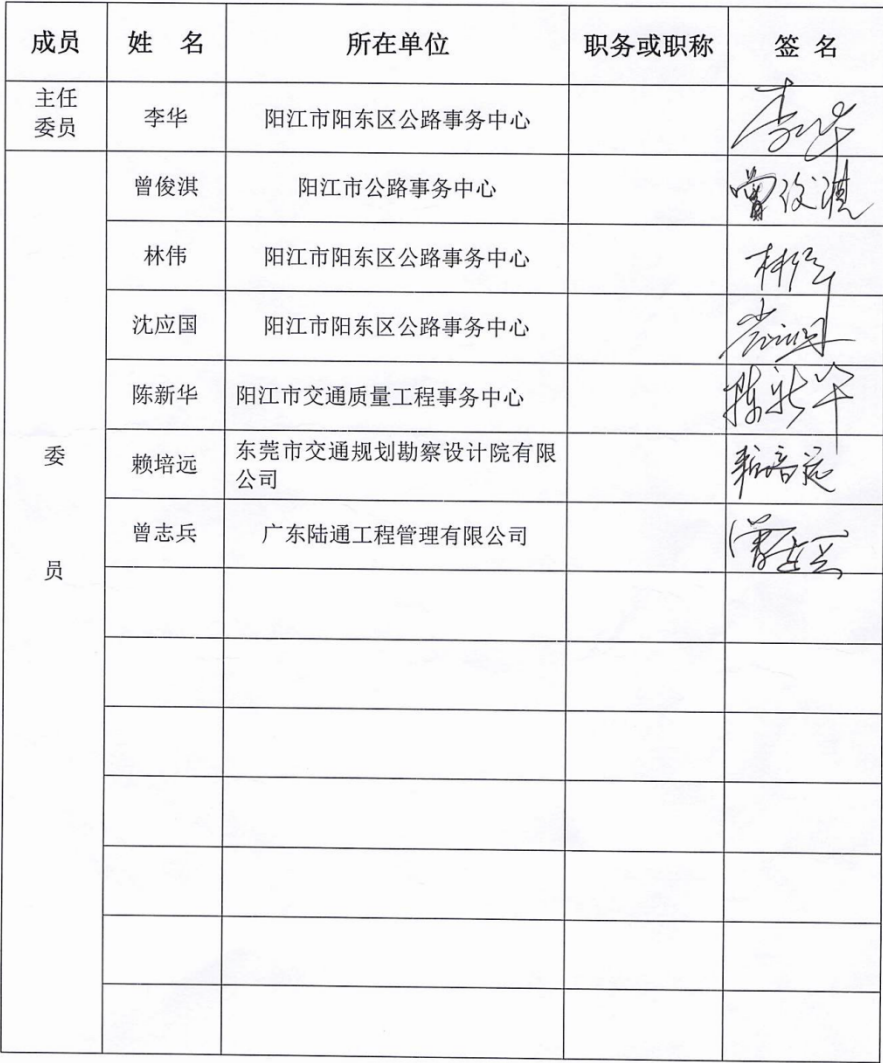 成员 姓 名 所在单位 职务或职称 签 名
主任
委员 李华 阳江市阳东区公路事务中心 李华
曾俊淇 阳江市公路事务中心 曾俊淇
林伟 阳江市阳东区公路事务中心 林伟
沈应国 阳江市阳东区公路事务中心
陈新华 阳江市交通质量工程事务中心 陈新华
委
赖培远 东莞市交通规划勘察设计院有限
公司 赖培远
曾志兵 广东陆通工程管理有限公司
员